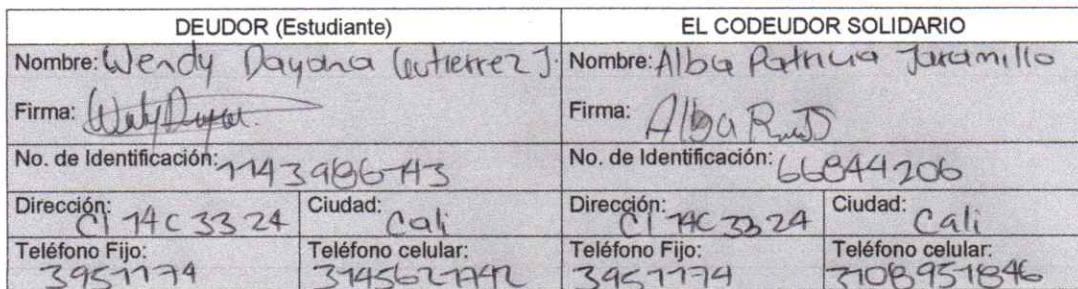 DEUDOR (Estudiante) EL CODEUDOR SOLIDARIO
Nombre: Wendy Dayana Gutierrez J. Nombre: Alba Patricia Jaramillo
Firma: Firma: Alba
No. de Identificación: No. de Identificación: 66844206
Dirección: Cl 74C 33 24 Ciudad: Cali Dirección: Cl 74C 33 24 Ciudad: Cali
Teléfono Fijo: Teléfono celular: Teléfono Fijo: Teléfono celular:
3951174 3951174 3108951846